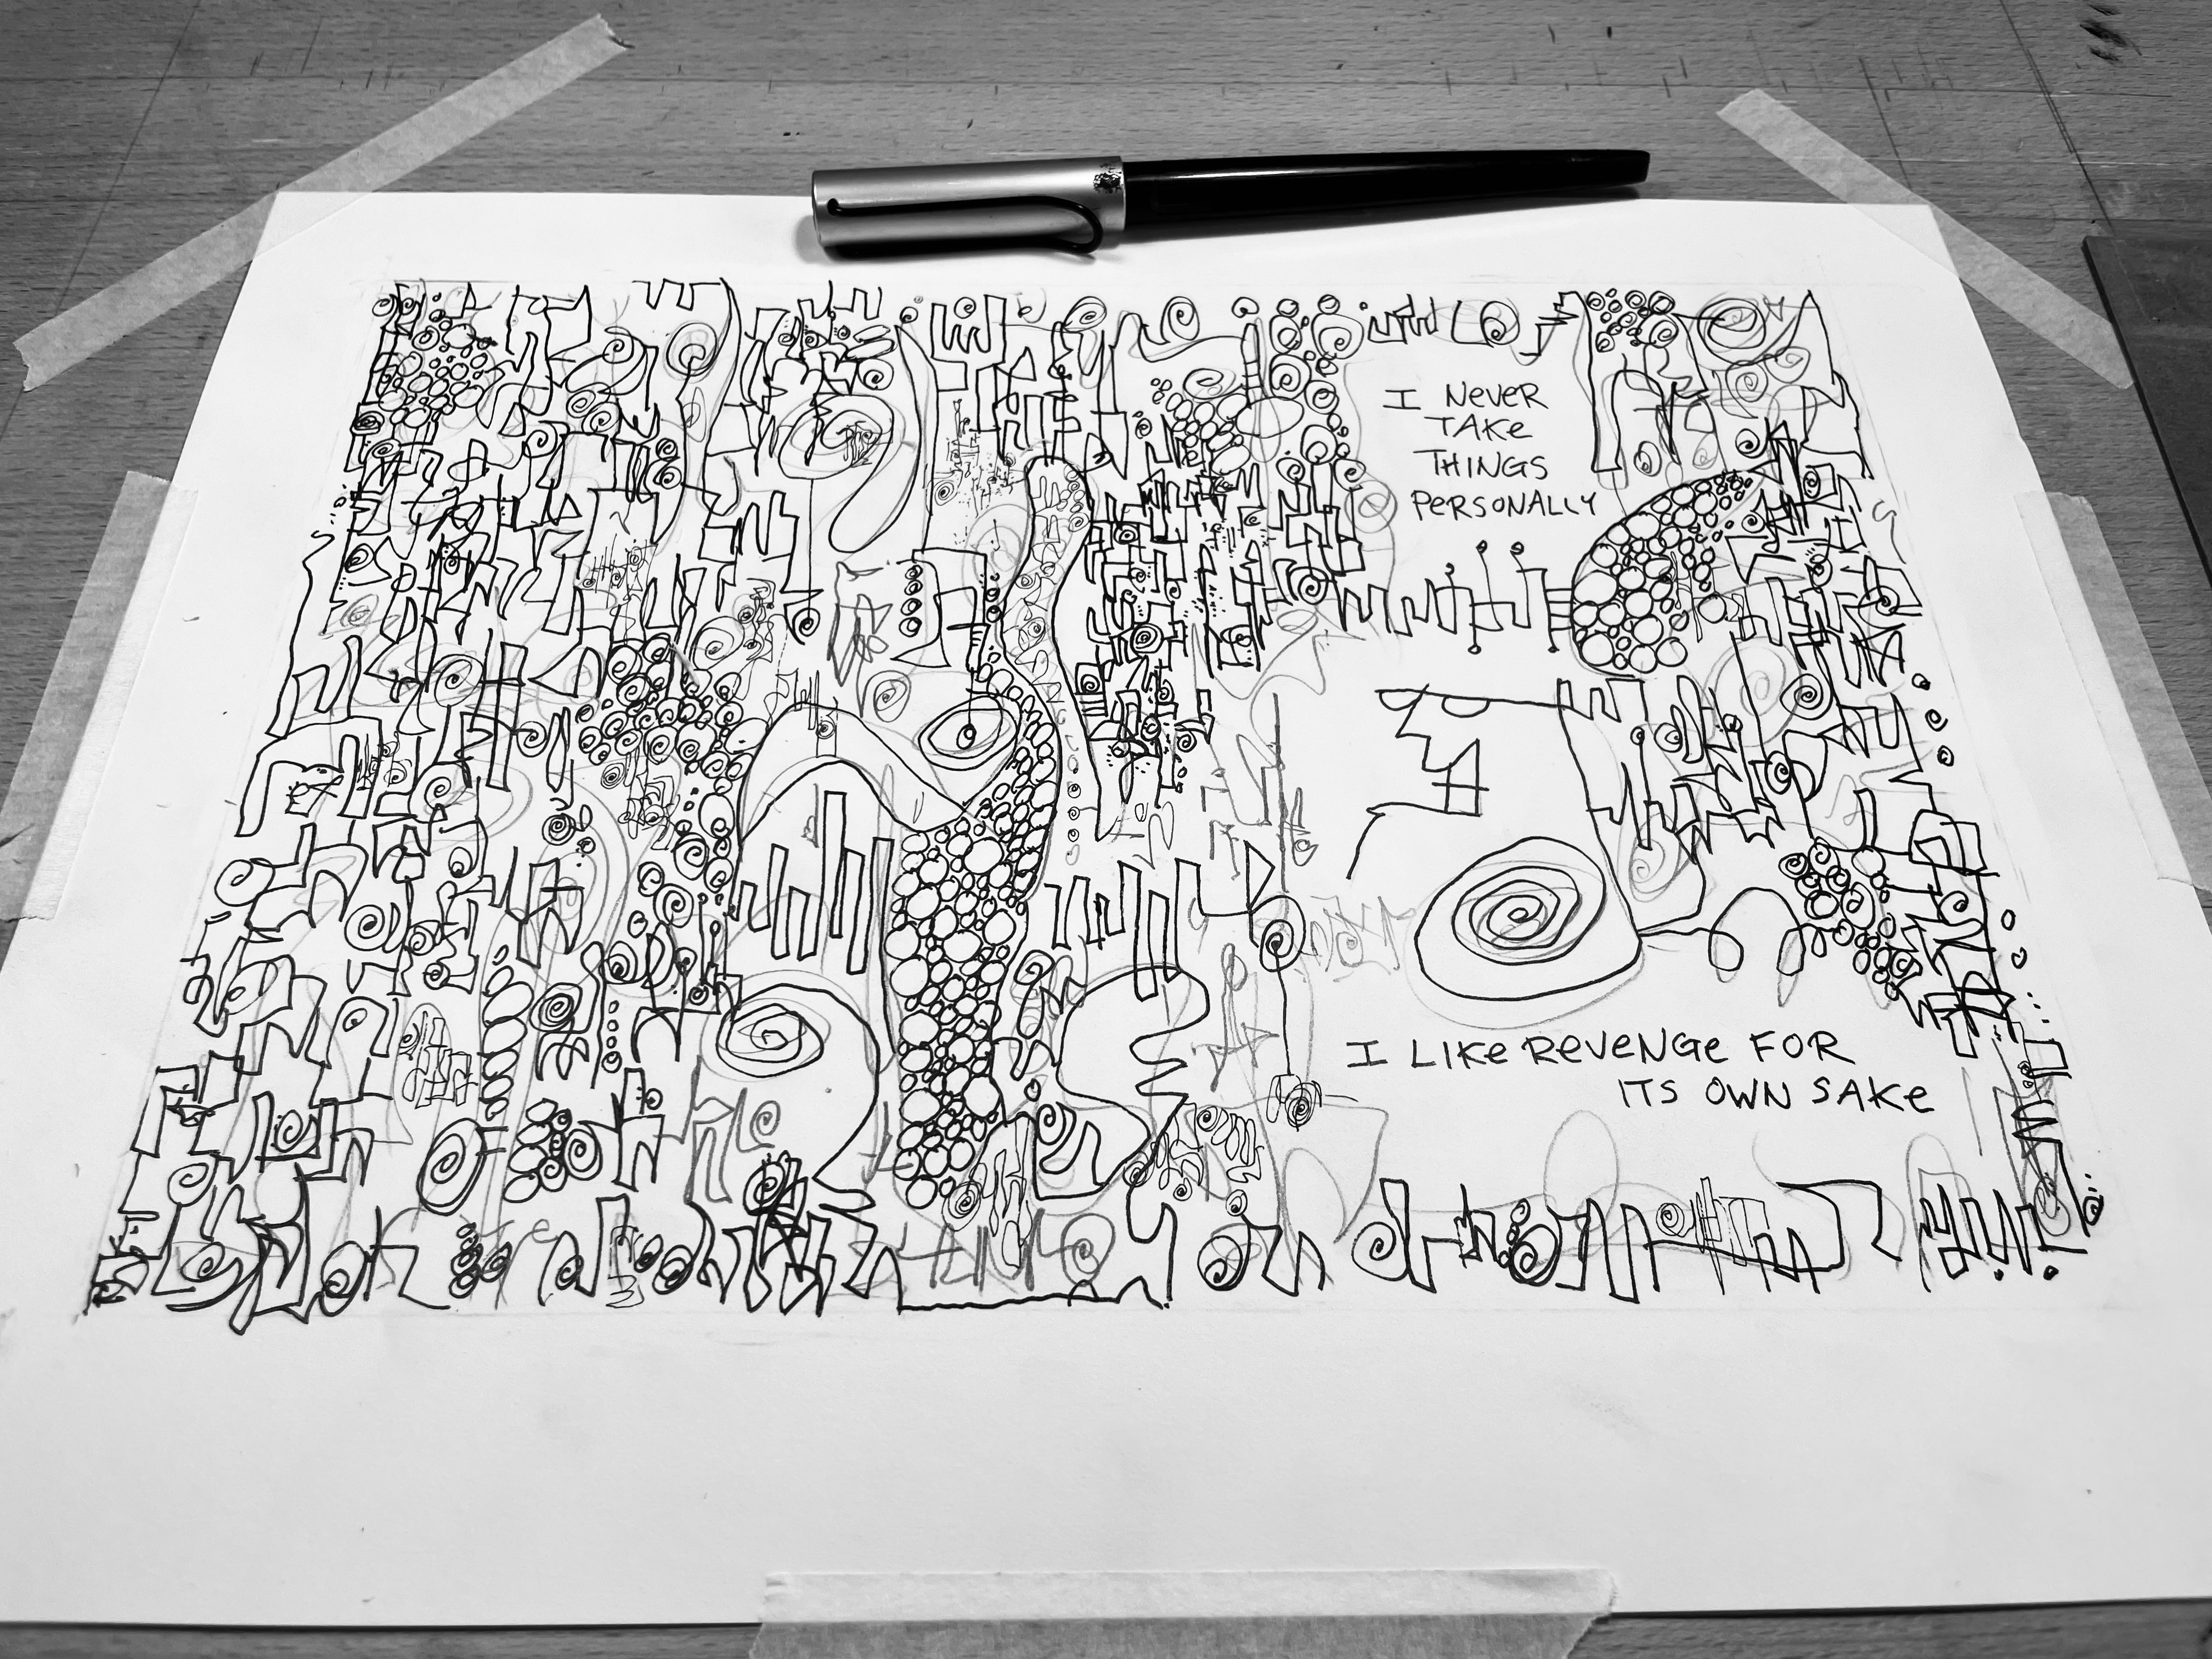 I NEVER
TAKE
THINGS
PERSONALLY
I LIKE REVENGE FOR
ITS OWN SAKE